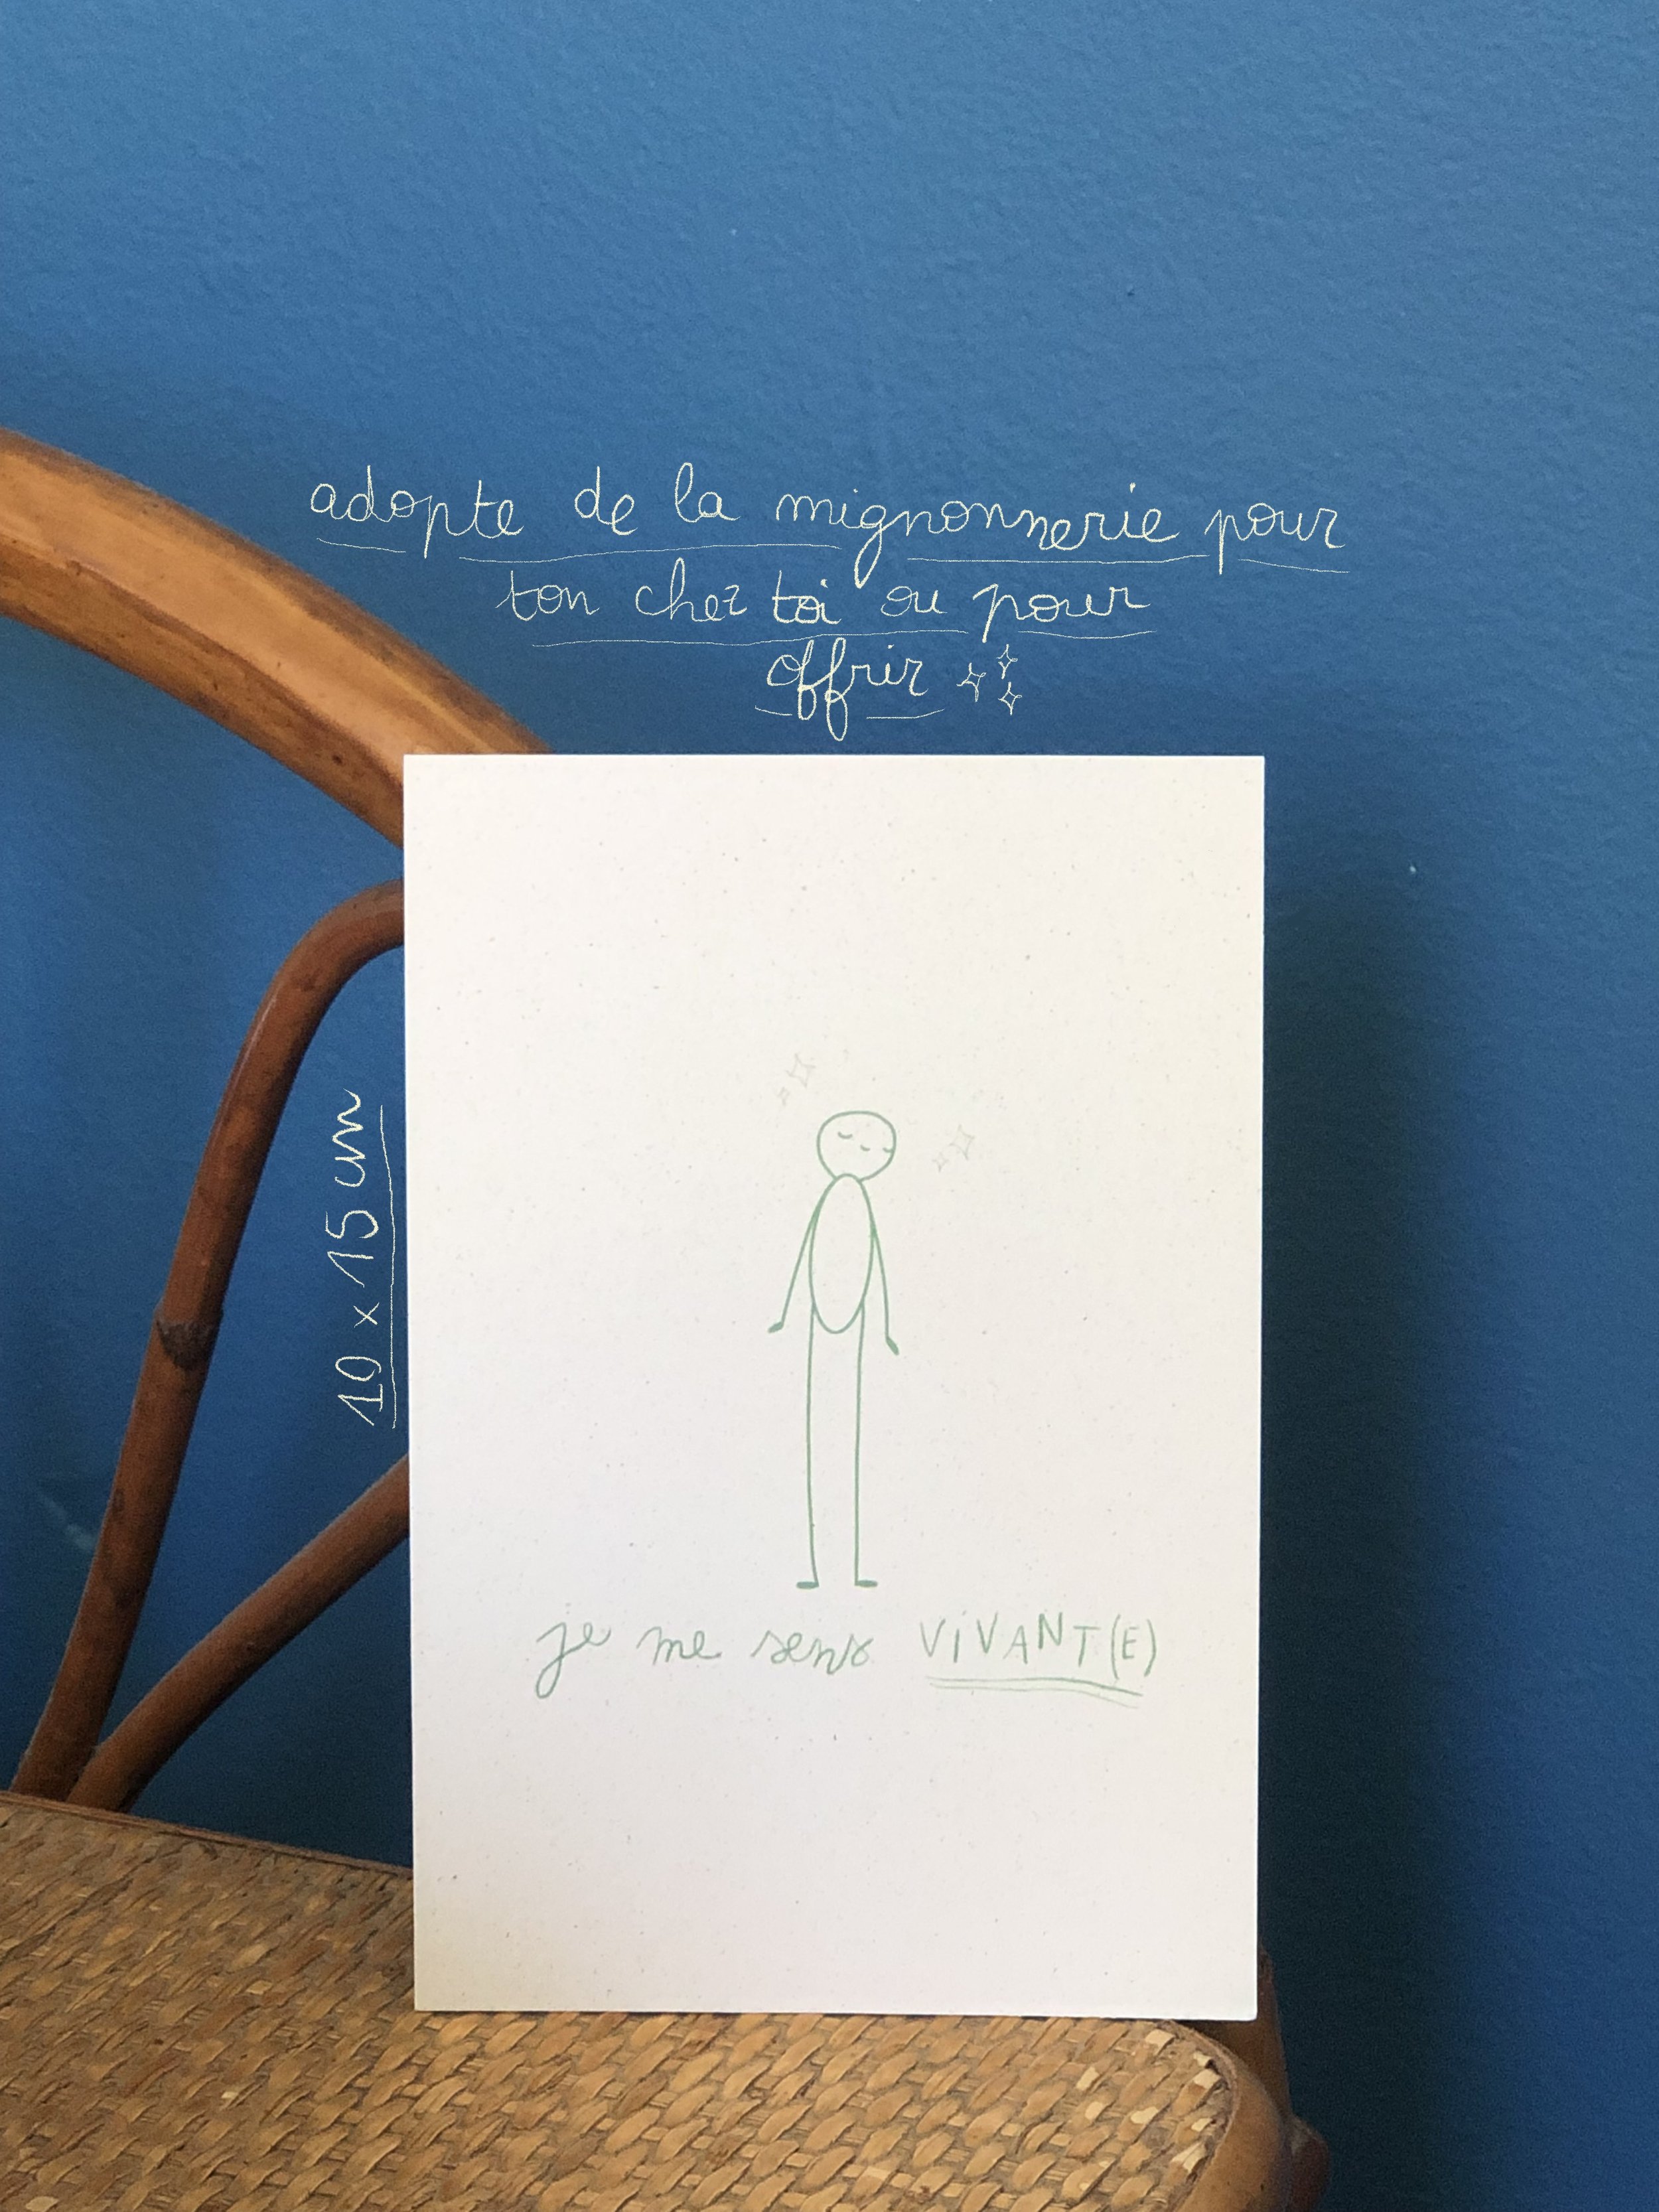 adopte de la mignonnerie pour
ton chez toi ou pour
offrir
10 x 15 cm
je me sens ViVANT(E)